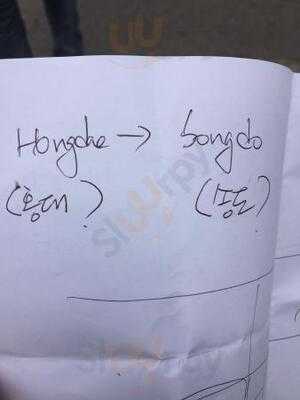 Hongdae → Songdo
(홍대) (송도)
sluurpy